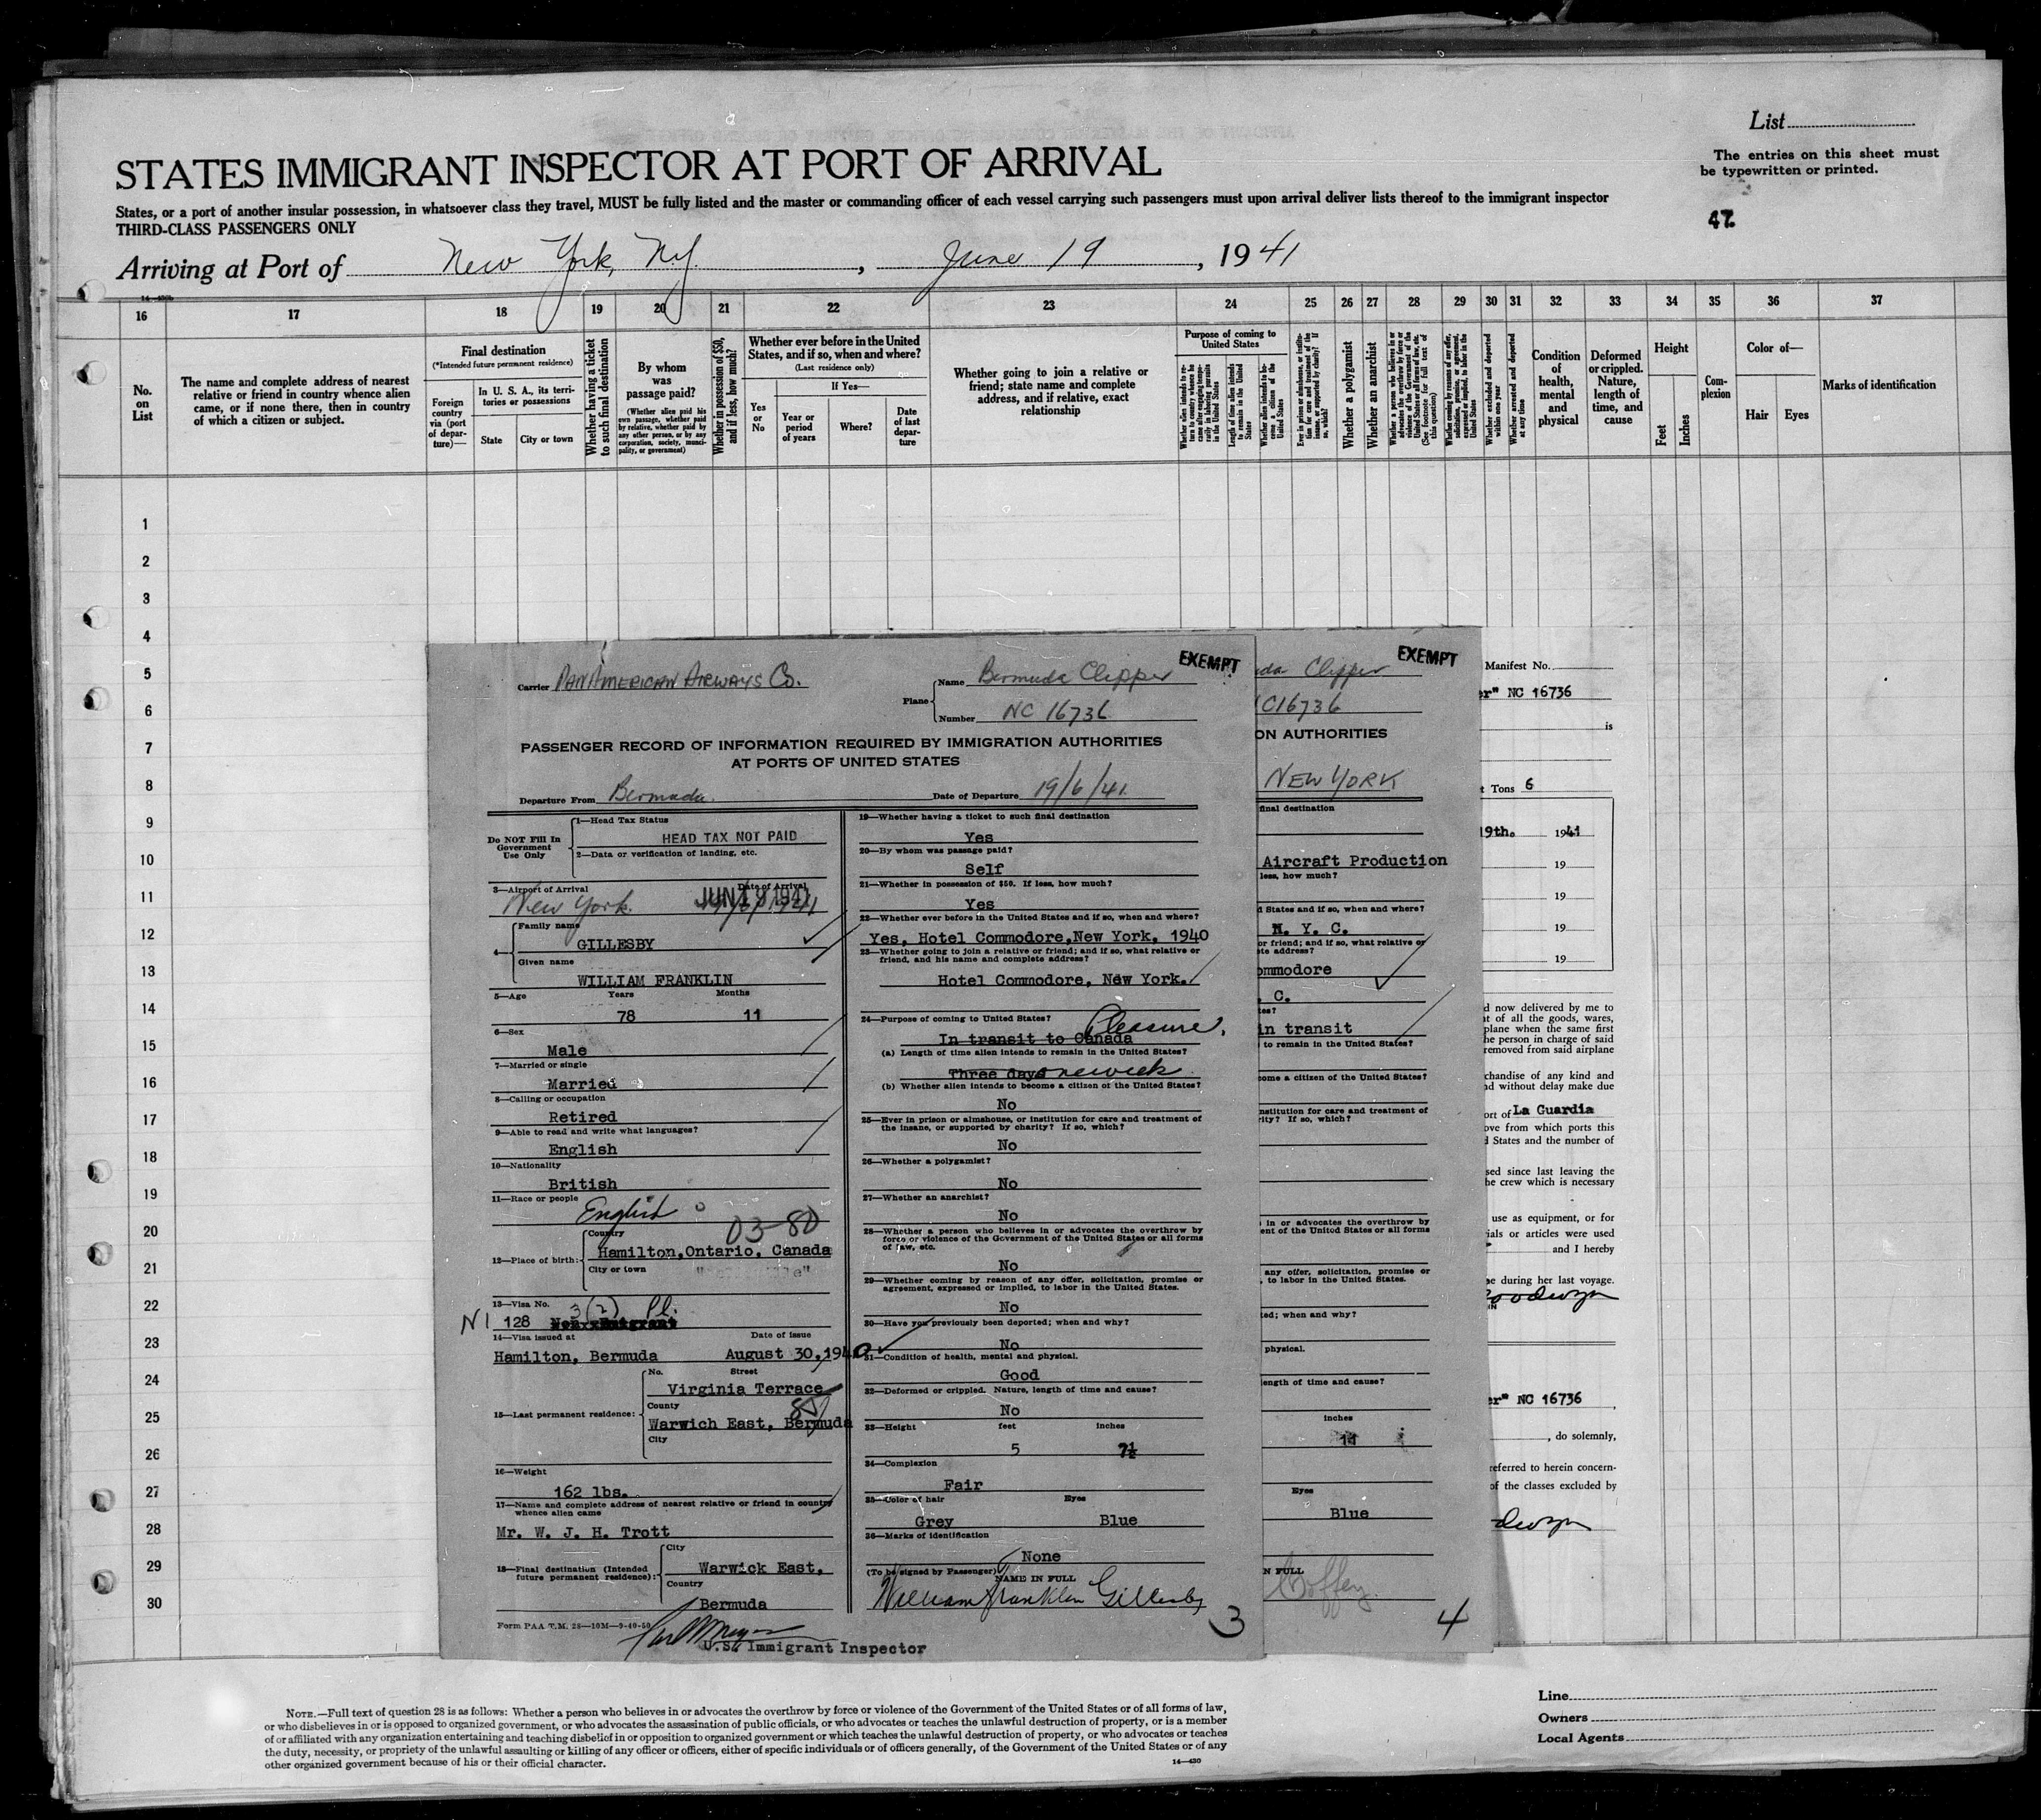 List
The entries on this sheet must
be typewritten or printed.
STATES IMMIGRANT INSPECTOR AT PORT OF ARRIVAL
States, or a port of another insular possession, in whatsoever class they travel, MUST be fully listed and the master or commanding officer of each vessel carrying such passengers must upon arrival deliver lists thereof to the immigrant inspector
THIRD-CLASS PASSENGERS ONLY
47
Arriving at Port of New York, N.Y., June 19, 1941
16 17 18 19 20 21 22 23 24 25 26 27 28 29 30 31 32 33 34 35 36 37
No.
on
List
The name and complete address of nearest
relative or friend in country whence alien
came, or if none there, then in country
of which a citizen or subject.
Final destination
(*Intended future permanent residence)
Foreign
country
via (port
of depar-
ture)—
In U. S. A., its terri-
tories or possessions
State
City or town
Whether having a ticket
to such final destination
By whom
was
passage paid?
(Whether alien paid his
own passage, whether paid
by relative, whether paid by
any other person, or by any
corporation, society, munici-
pality, or government)
Whether in possession of $50,
and if less, how much?
Whether ever before in the United
States, and if so, when and where?
(Last residence only)
Yes
or
No
If Yes—
Year or
period
of years
Where?
Date
of last
depar-
ture
Whether going to join a relative or
friend; state name and complete
address, and if relative, exact
relationship
Purpose of coming to
United States
Length of time alien intends
to remain in the United
States
Whether alien intends to be-
come a citizen of the
United States
Whether a polygamist
Whether an anarchist
Whether excluded and deported
within one year
Whether arrested and deported
at any time
Condition
of
health,
mental
and
physical
Deformed
or crippled.
Nature,
length of
time, and
cause
Height
Feet
Inches
Com-
plexion
Color of—
Hair
Eyes
Marks of identification
1
2
3
4
5
6
7
8
9
10
11
12
13
14
15
16
17
18
19
20
21
22
23
24
25
26
27
28
29
30
Carrier PAN AMERICAN AIRWAYS Co.
Plane
Name Bermuda Clipper
Number NC 16736
EXEMPT
PASSENGER RECORD OF INFORMATION REQUIRED BY IMMIGRATION AUTHORITIES
AT PORTS OF UNITED STATES
Departure From Bermuda. Date of Departure 19/6/41
Do NOT Fill In
Government
Use Only
1—Head Tax Status
HEAD TAX NOT PAID
2—Data or verification of landing, etc.
3—Airport of Arrival Date of Arrival
New York. JUN 19 1941
4—
Family name
GILLESBY
Given name
WILLIAM FRANKLIN
5—Age Years Months
78 11
6—Sex
Male
7—Married or single
Married
8—Calling or occupation
Retired
9—Able to read and write what languages?
English
10—Nationality
British
11—Race or people
English
03-80
12—Place of birth:
Country
Hamilton,Ontario, Canada
City or town
13—Visa No. 3(2) Pl.
N1 128
14—Visa issued at Date of issue
Hamilton, Bermuda August 30,1940
15—Last permanent residence:
No. Street
Virginia Terrace
County
Warwich East, Bermuda
City
16—Weight
162 lbs.
17—Name and complete address of nearest relative or friend in country
whence alien came
Mr. W. J. H. Trott
18—Final destination (Intended
future permanent residence):
City
Warwick East,
Country
Bermuda
Form PAA T.M. 28—10M—9-40-50
U.S. Immigrant Inspector
19—Whether having a ticket to such final destination
Yes
20—By whom was passage paid?
Self
21—Whether in possession of $50. If less, how much?
Yes
22—Whether ever before in the United States and if so, when and where?
Yes, Hotel Commodore,New York. 1940
23—Whether going to join a relative or friend; and if so, what relative or
friend, and his name and complete address?
Hotel Commodore, New York.
24—Purpose of coming to United States? Pleasure.
In transit to Canada
(a) Length of time alien intends to remain in the United States?
Three days one week
(b) Whether alien intends to become a citizen of the United States?
No
25—Ever in prison or almshouse, or institution for care and treatment of
the insane, or supported by charity? If so, which?
No
26—Whether a polygamist?
No
27—Whether an anarchist?
No
28—Whether a person who believes in or advocates the overthrow by
force or violence of the Government of the United States or all forms
of law, etc.
No
29—Whether coming by reason of any offer, solicitation, promise or
agreement, expressed or implied, to labor in the United States.
No
30—Have you previously been deported; when and why?
No
31—Condition of health, mental and physical.
Good
32—Deformed or crippled. Nature, length of time and cause?
No
33—Height feet inches
5 7½
34—Complexion
Fair
35—Color of hair Eyes
Grey Blue
36—Marks of identification
None
(To be signed by Passenger) NAME IN FULL
William Franklin Gillesby
3
EXEMPT
uda Clipper
C16736
ON AUTHORITIES
NEW YORK
final destination
Aircraft Production
less, how much?
d States and if so, when and where?
N. Y. C.
or friend; and if so, what relative or
ete address?
ommodore
. C.
tes?
in transit
to remain in the United States?
come a citizen of the United States?
nstitution for care and treatment of
rity? If so, which?
in or advocates the overthrow by
ent of the United States or all forms
any offer, solicitation, promise or
, to labor in the United States.
ted; when and why?
physical.
length of time and cause?
inches
11
Eyes
Blue
N FULL
Coffey.
4
Manifest No.
er" NC 16736
is
t Tons 6
19th. 1941
19
19
19
19
d now delivered by me to
t of all the goods, wares,
plane when the same first
he person in charge of said
removed from said airplane
chandise of any kind and
nd without delay make due
ort of La Guardia
ove from which ports this
d States and the number of
sed since last leaving the
he crew which is necessary
use as equipment, or for
ials or articles were used
and I hereby
e during her last voyage.
er" NC 16736
, do solemnly,
referred to herein concern-
of the classes excluded by
NOTE.—Full text of question 28 is as follows: Whether a person who believes in or advocates the overthrow by force or violence of the Government of the United States or of all forms of law,
or who disbelieves in or is opposed to organized government, or who advocates the assassination of public officials, or who advocates or teaches the unlawful destruction of property, or is a member
of or affiliated with any organization entertaining and teaching disbelief in or opposition to organized government or which teaches the unlawful destruction of property, or who advocates or teaches
the duty, necessity, or propriety of the unlawful assaulting or killing of any officer or officers, either of specific individuals or of officers generally, of the Government of the United States or of any
other organized government because of his or their official character.
14—430
Line
Owners
Local Agents